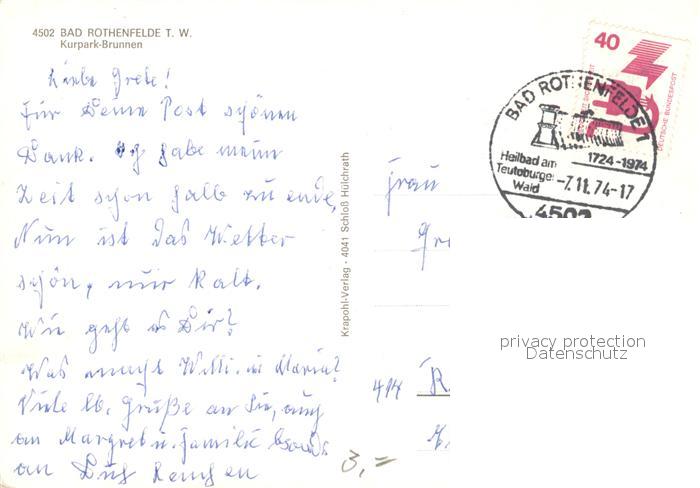 4502 BAD ROTHENFELDE T. W.
Kurpark-Brunnen
Liebe Grete!
Für Deine Post schönen
Dank. Ich habe meine
Zeit schon halb zu ende,
Nun ist das Wetter
schön, nur kalt.
Wie geht es Dir?
Was macht Willi. u Maria?
Viele lb. Grüße an Sie, auch
an Margret u. Familie
an
Krapohl-Verlag · 4041 Schloß Hülchrath
40
DEUTSCHE BUNDESPOST
BAD ROTHENFELDE 1
1724-1974
Heilbad am
Teutoburger
Wald
-7.11.74-17
4502
Frau
Gr
414 R.
privacy protection
Datenschutz
3,=